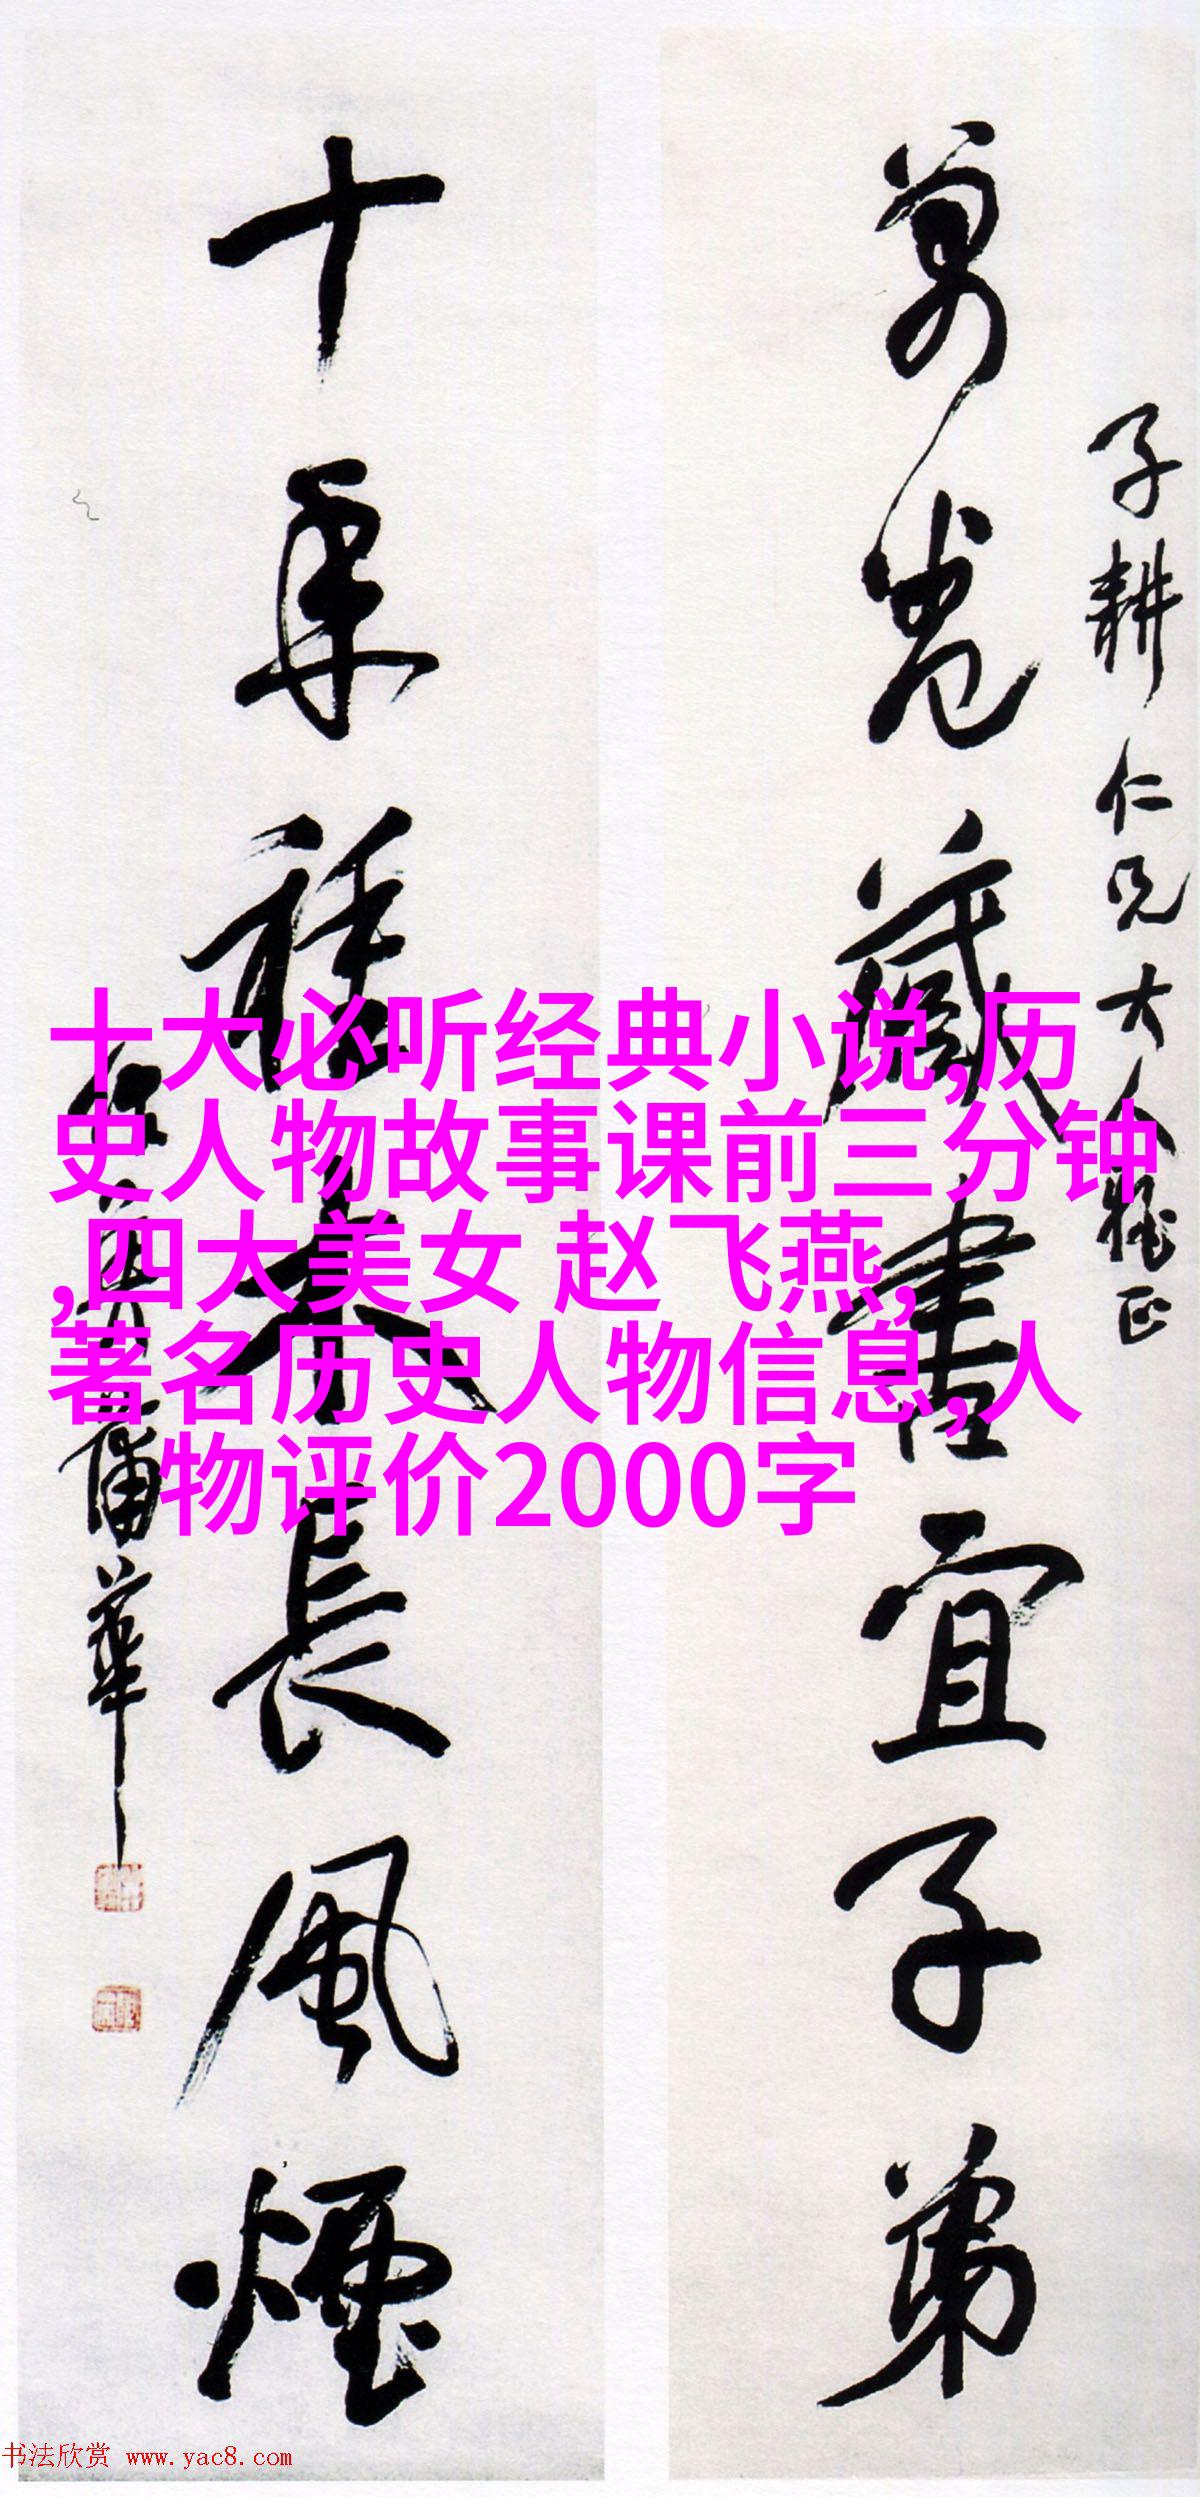 子耕仁兄大人雅正
萬卷藏書宜子弟
十年種木長風煙
蒲華
十大必听经典小说,历
史人物故事课前三分钟
,四大美女 赵飞燕,
著名历史人物信息,人
物评价2000字
书法欣赏 www.yac8.com